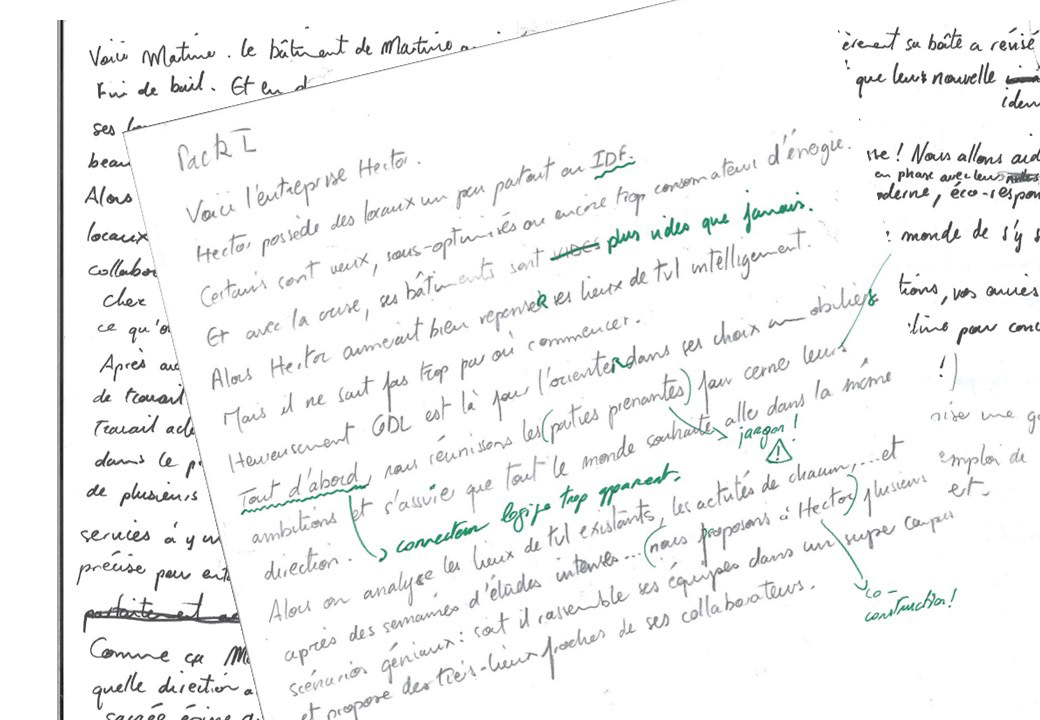 Voici Martine. le bâtiment de Martine
Fin de bail. Et en d
ses
beau
Alors
locaux
collabor
cher
ce qu'o
Après
de travail
Travail
dans le
de plusieurs
services à y
précise pour
parfaite et
Comme ça
quelle direction a
Pack I
Voici l'entreprise Hector.
Hector possède des locaux un peu partout en IDF.
Certains sont vieux, sous-optimisés ou encore trop consomateurs d'énergie.
Et avec la crise, ses bâtiments sont VIDES plus vides que jamais.
Alors Hector aimerait bien repenser ses lieux de tvl intelligement.
Mais il ne sait pas trop par où commencer.
Heureusement GDL est là pour l'orienter dans ses choix immobiliers
Tout d'abord nous réunissons les (parties prenantes) pour cerner leurs
jargon !
ambitions et s'assure que tout le monde souhaite aller dans la même
direction.
connecteur logique trop apparent.
Alors on analyse les lieux de tvl existants, les activités de chacun,... et
après des semaines d'études intenses... (nous proposons à Hector) plusieurs
co-construction!
scénarios géniaux : soit il rassemble ses équipes dans un super campus
et propose des tiers-lieux proches de ses collaborateurs.
èrement sa boîte a révisé
que leurs nouvelle
iden
se ! Nous allons aid
en phase avec leurs
oderne, éco-respon
: monde de s'y s
tions, vos
pour conc
!)
niser une
emploi de
et